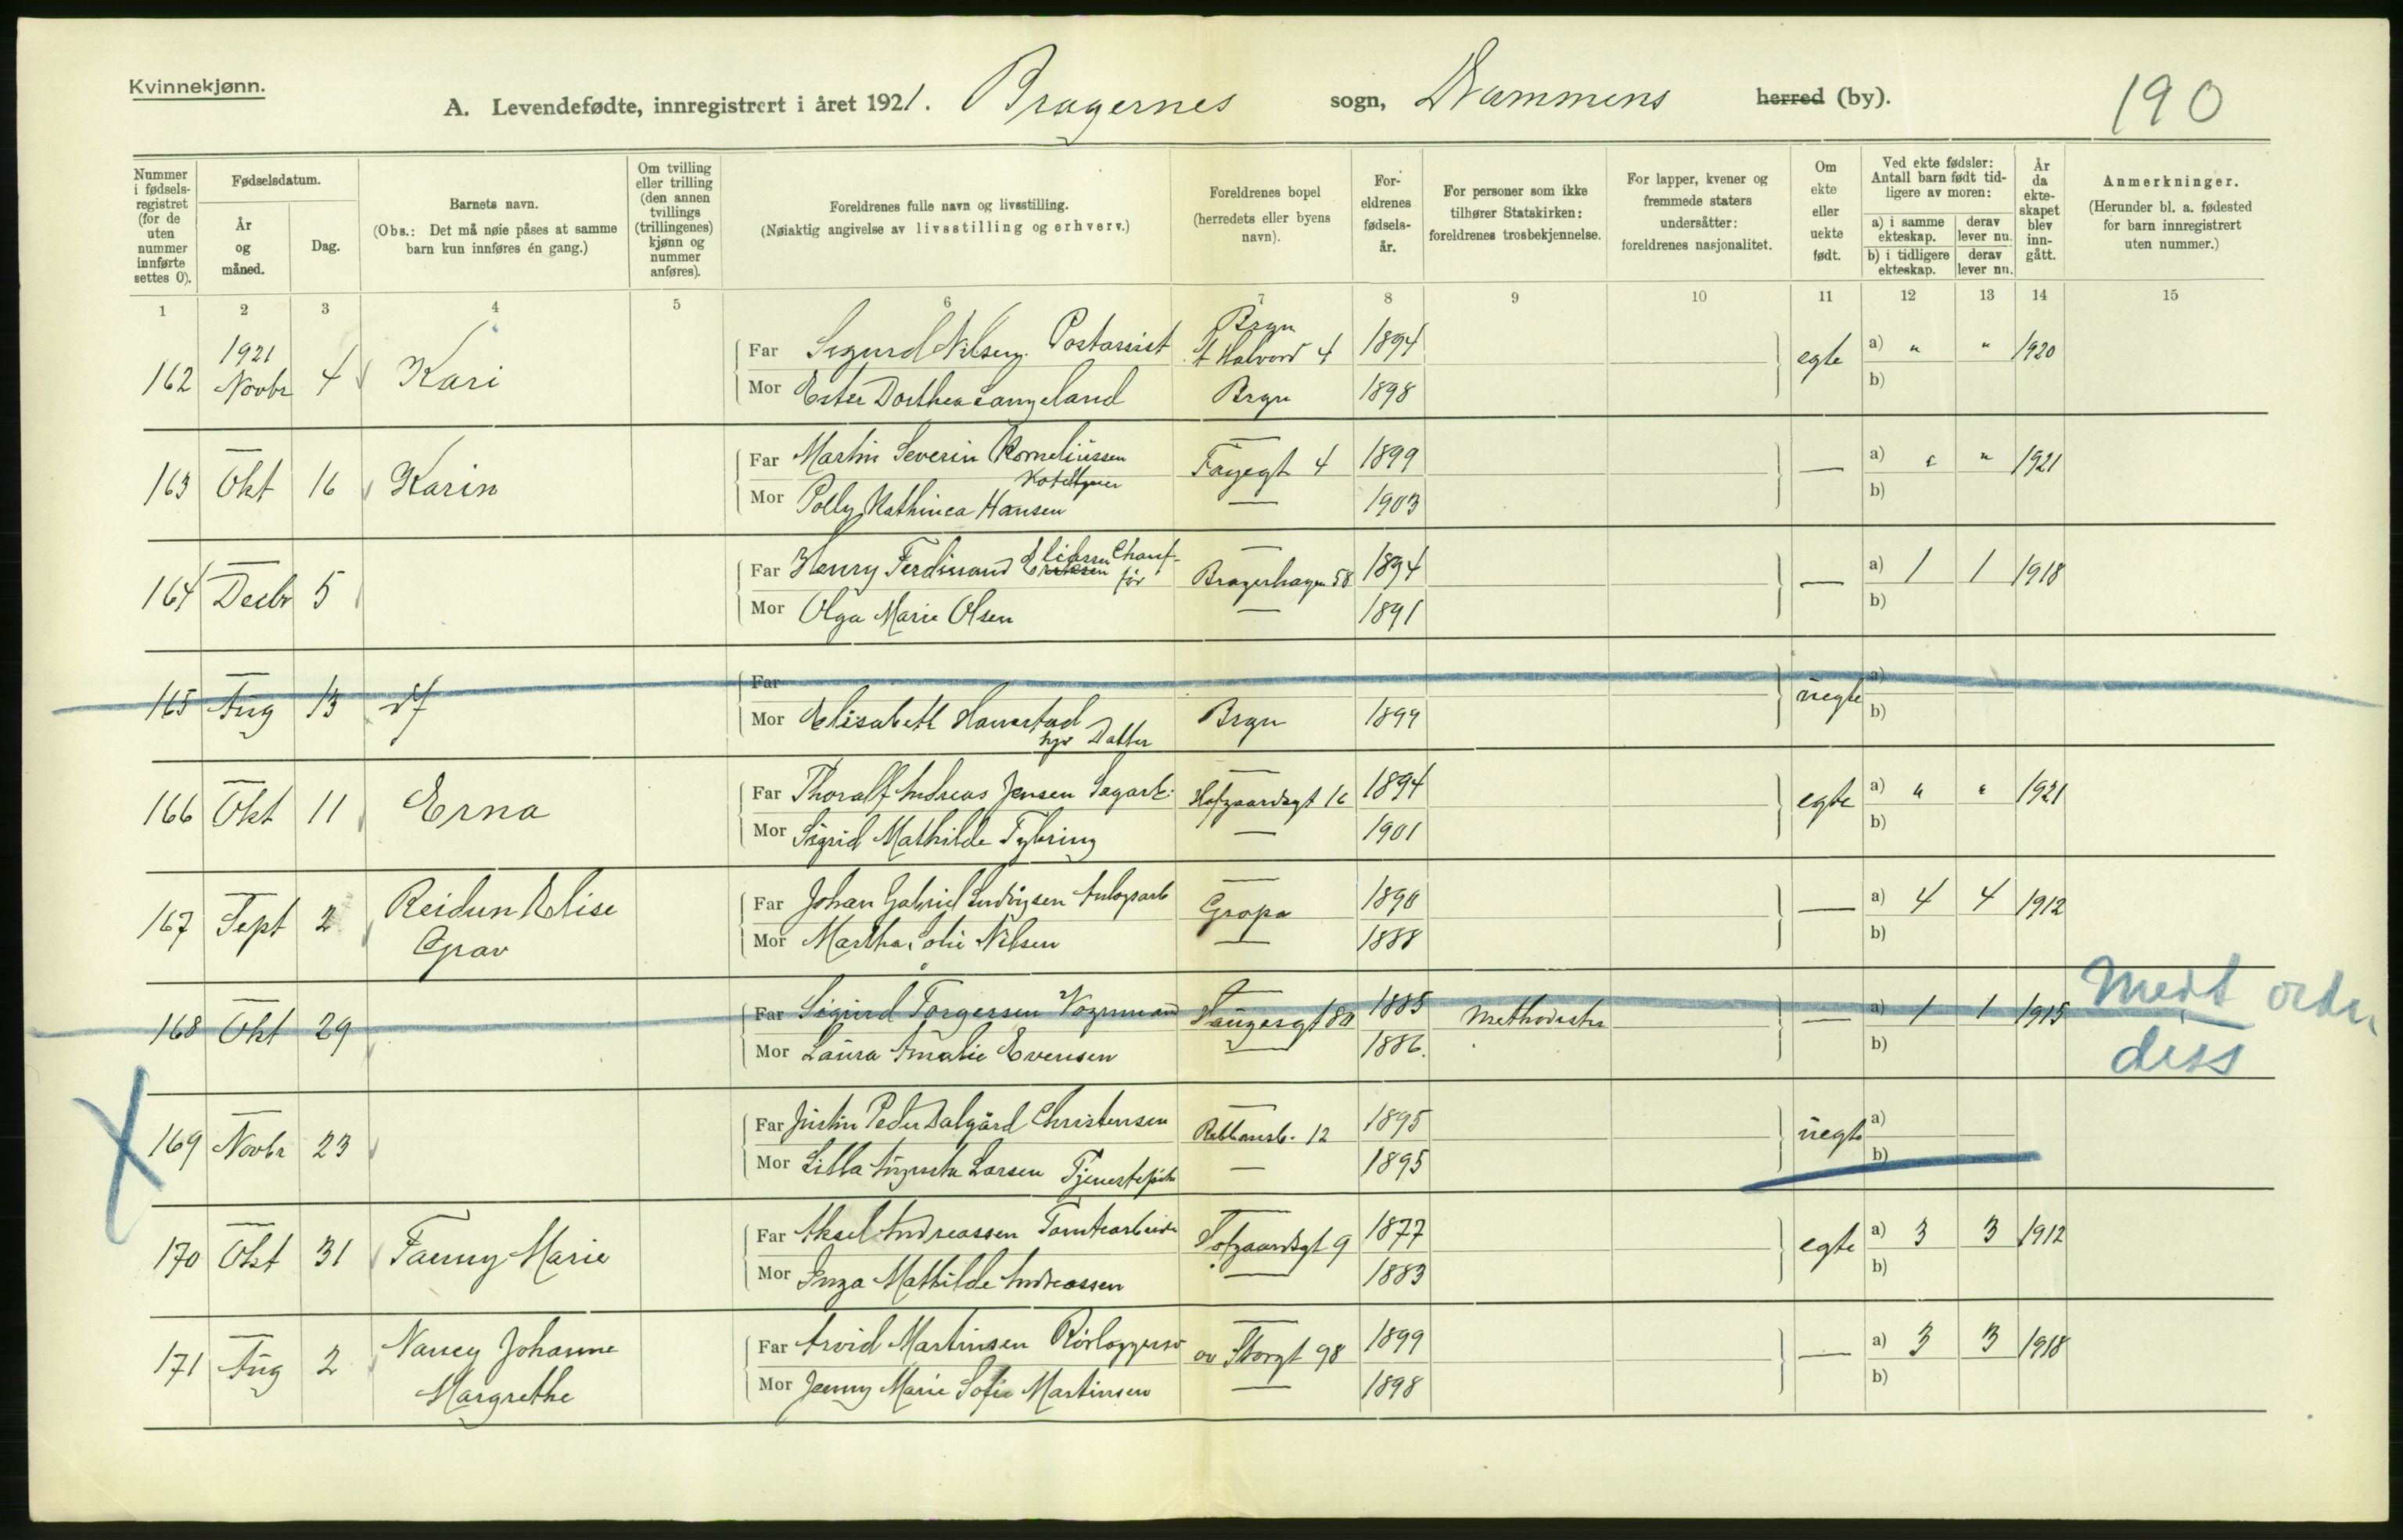 Kvinnekjønn.
A. Levendefødte, innregistrert i året 1921. Bragernes sogn, Drammens herred (by).
190
Nummer i fødsels-registret (for de uten nummer innførte settes 0).
Fødselsdatum.
År og måned.
Dag.
Barnets navn.
(Obs.: Det må nøie påses at samme barn kun innføres én gang.)
Om tvilling eller trilling (den annen tvillings (trillingenes) kjønn og nummer anføres).
Foreldrenes fulle navn og livsstilling.
(Nøiaktig angivelse av livsstilling og erhverv.)
Foreldrenes bopel (herredets eller byens navn).
For-eldrenes fødsels-år.
For personer som ikke tilhører Statskirken: foreldrenes trosbekjennelse.
For lapper, kvener og fremmede staters undersåtter: foreldrenes nasjonalitet.
Om ekte eller uekte født.
Ved ekte fødsler: Antall barn født tid-ligere av moren:
a) i samme ekteskap.
derav lever nu.
b) i tidligere ekteskap.
derav lever nu.
År da ekte-skapet blev inn-gått.
Anmerkninger.
(Herunder bl. a. fødested for barn innregistrert uten nummer.)
1 2 3 4 5 6 7 8 9 10 11 12 13 14 15
162 1921 Novbr 4 Kari Far Sigurd Nilsen Postassist Brgn St Halvord 4 1894 egte a) " " 1920
Mor Ester Dorthea Langeland Brgn 1898 b)
163 — Okt 16 Karin Far Martin Severin Korneliussen — Frygt 4 1899 — a) " " 1921
Mor Polly Kathinca Hansen — 1903 b)
164 — Decbr 5 Far Henry Ferdinand Eriksen Chauf-før — Bragerhagen 58 1894 — a) 1 1 1918
Mor Olga Marie Olsen — 1891 b)
165 — Aug 13 Far uegte a)
Mor Elisabeth Datter Brgn 1899 b)
166 — Okt 11 Erna Far Thoralf Andreas Jensen Sagarb. — Hofgaardsgt 16 1894 egte a) " " 1921
Mor Sigrid Mathilde Tybring — 1901 b)
167 — Sept 2 Reidun Elise Grav Far Johan Gabriel Ludvigsen Anlegsarb — Gropa 1890 — a) 4 4 1912
Mor Martha Sofie Nilsen — 1888 b)
168 — Okt 29 Far Sigurd Torgersen Vognmand — Haugesgt 80 1885 Methodister — a) 1 1 1915 Med diss
Mor Laura Amalie Evensen — 1886. b)
169 — Novbr 23 Far Justin Peder Dalgård Christensen — 12 1895 uegte a)
Mor Lilla Augusta Larsen Tjenestepike — 1895 b)
170 — Okt 31 Fanny Marie Far Aksel Andreassen Tomtearbeider — Hofgaardsgt 9 1877 egte a) 3 3 1912
Mor Inga Mathilde Andreassen — 1883 b)
171 — Aug 2 Nancy Johanne Margrethe Far Arvid Martinsen Rørlæggersv — ov Storgt 98 1899 — a) 3 3 1918
Mor Jenny Marie Sofie Martinsen — 1898 b)